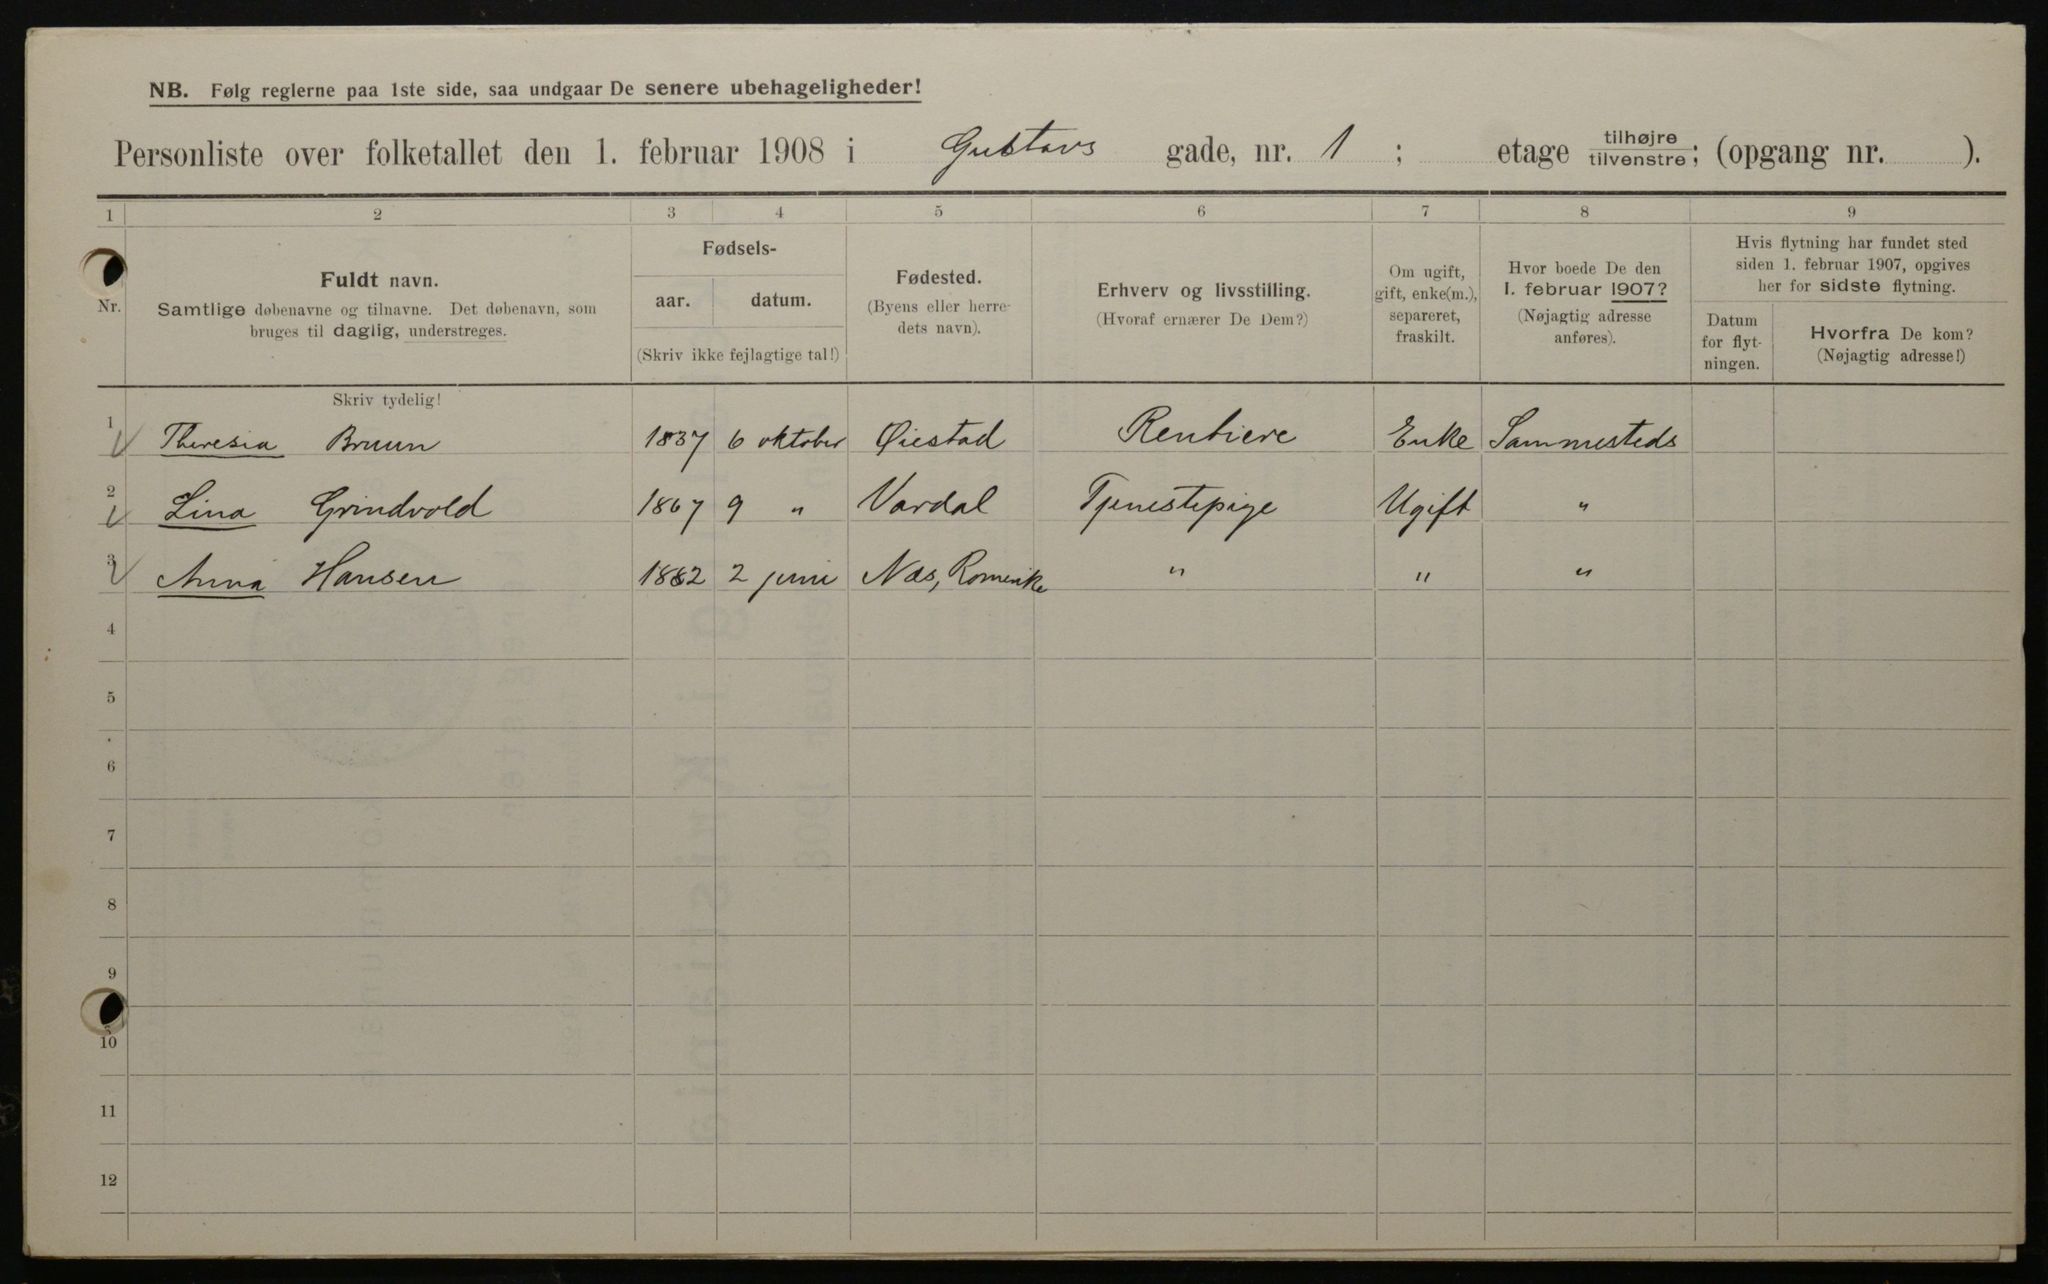 NB. Følg reglerne paa 1ste side, saa undgaar De senere ubehageligheder!
Personliste over folketallet den 1. februar 1908 i Gustavs gade, nr. 1 ; etage tilhøjre/tilvenstre; (opgang nr. ).
1 2 3 4 5 6 7 8 9
Nr.
Fuldt navn.
Samtlige døbenavne og tilnavne. Det døbenavn, som
bruges til daglig, understreges.
Fødsels-
aar. datum.
(Skriv ikke fejlagtige tal!)
Fødested.
(Byens eller herre-
dets navn).
Erhverv og livsstilling.
(Hvoraf ernærer De Dem?)
Om ugift,
gift, enke(m.),
separeret,
fraskilt.
Hvor boede De den
1. februar 1907?
(Nøjagtig adresse
anføres).
Hvis flytning har fundet sted
siden 1. februar 1907, opgives
her for sidste flytning.
Datum
for flyt-
ningen.
Hvorfra De kom?
(Nøjagtig adresse!)
Skriv tydelig!
1 Theresia Bruun 1837 6 oktober Øiestad Rentiere Enke Sammesteds
2 Lina Grindvold 1867 9 " Vardal Tjenestepige Ugift "
3 Anna Hansen 1882 2 juni Næs, Romerike " " "
4
5
6
7
8
9
10
11
12